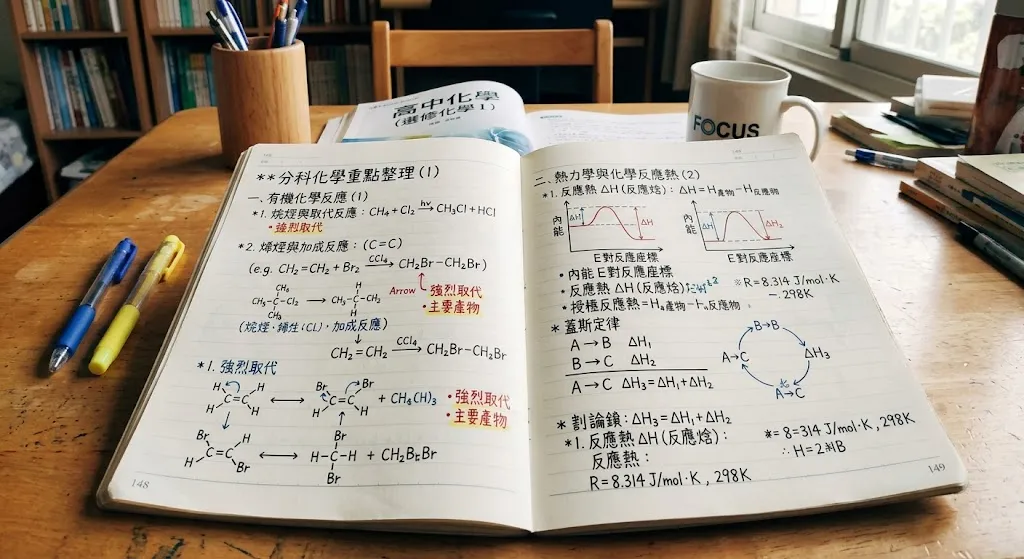 高中化學
(選修化學1)
FOCUS
**分科化學重點整理(1)
一、有機化學反應(1)
*1. 烷烴與取代反應：CH₄+Cl₂ →hv CH₃Cl+HCl
•強烈取代
*2. 烯烴與加成反應：(C=C)
(e.g. CH₂=CH₂+Br₂ →CCl₄ CH₂Br—CH₂Br)
Arrow
•強烈取代
•主要產物
CH₃
CH₃-C-Cl₂
CH₃
→
H
CH₃-C-CH₃
H
加成反應)
CH₂=CH₂ →CCl₄ CH₂Br—CH₂Br
*1. 強烈取代
H H
C=C
H H
↔
Br Br
C=C
H H
+ CH₄(H)₃
•強烈取代
•主要產物
Br H
C=C
H Br
↔
Br
H-C-H
Br
148
二、熱力學與化學反應熱(2)
*1. 反應熱ΔH(反應焓)：ΔH=H產物-H反應物
內能
ΔH
ΔH
E對反應座標
內能
ΔH₁
ΔH₂
E對反應座標
•內能E對反應座標
•反應熱ΔH(反應焓)
※R=8.314 J/mol·K
—.298K
* 蓋斯定律
A→B ΔH₁
B→C ΔH₂
A→C ΔH₃=ΔH₁+ΔH₂
B→B
A→C
ΔH₃
A→C
ΔH₃=ΔH₁+ΔH₂
*1. 反應熱ΔH(反應焓)：
反應熱：
R=8.314 J/mol·K , 298K
*=8=314 J/mol·K , 298K
149